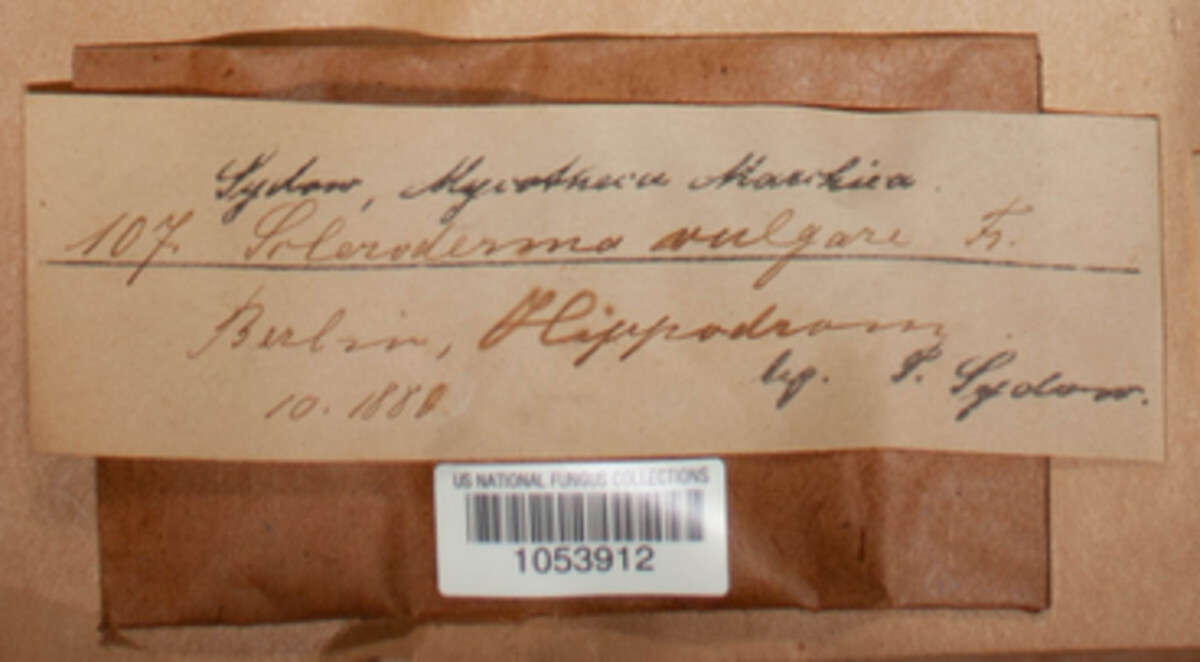 Sydow, Mycotheca Marchica.
107. Scleroderma vulgare Fr.
Berlin, Hippodrom
leg. P. Sydow.
10. 1880
US NATIONAL FUNGUS COLLECTIONS
1053912